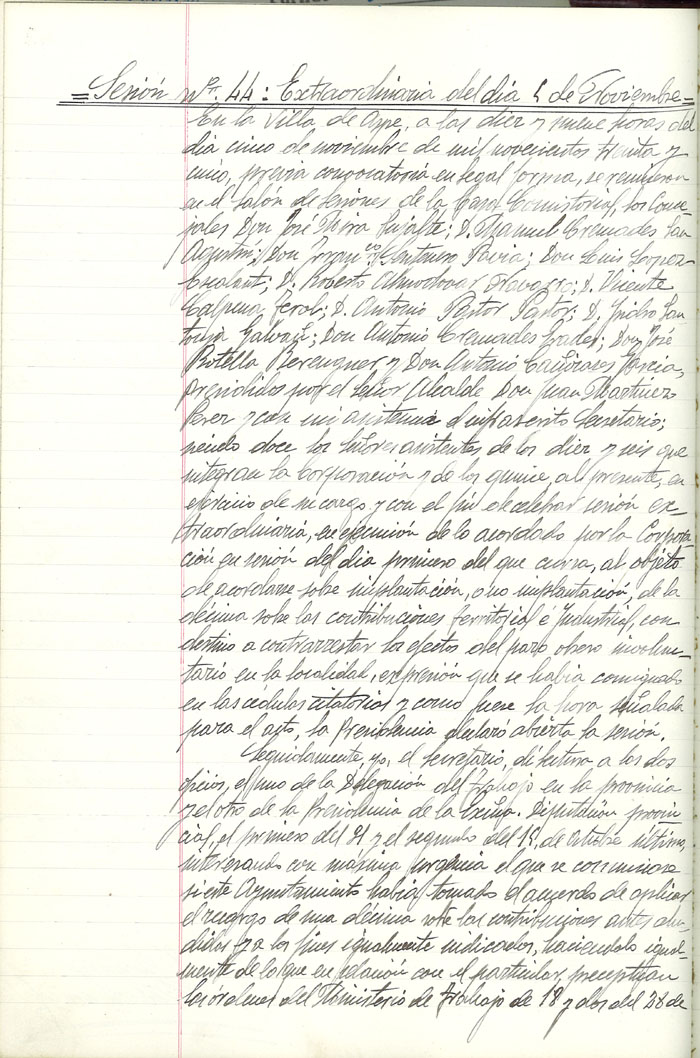 Sesión nº. 44: Extraordinaria del dia 5 de Noviembre
En la Villa de Aspe, a las diez y nueve horas del
dia cinco de noviembre de mil novecientos treinta y
cinco, previa convocatoria en legal forma, se reunieron
en el salón de sesiones de la Casa Consistorial, los Conce-
jales Don José Mira Gujalte; D. Manuel Cremades San
Agustin; Don Franco. Centenero Pavia; Don Luis Lopez
D. Roberto Almodovar Navarro; D. Vicente
Calpena Ferol; D. Antonio Pastor Pastor; D. Ysidro San-
tonja Galvañ; Don Antonio Cremades Don José
Botella Berenguer y Don Antonio Cañizares Garcia,
presididos por el Señor Alcalde Don Juan Martinez
Perez y con mi asistencia el infrascrito Secretario;
siendo doce los Señores asistentes de los diez y seis que
integran la Corporación y de los quince, al presente, en
ejercicio de su cargo y con el fin de celebrar sesión ex-
traordinaria, en ejecución de lo acordado por la Corpora-
ción en sesión del dia primero del que cursa, al objeto
de acordarse sobre implantación, o no implantación, de la
décima sobre las contribuciones territorial é Industrial, con
destino a contrarrestar los efectos del paro obrero involun-
tario en la localidad, expresión que se habia consignado
en las cédulas citatorias y como fuere la hora señalada
para el acto, la Presidencia declaró abierta la sesión.
Seguidamente, yo, el secretario, di lectura a los dos
oficios, el uno de la Delegación del Trabajo en la provincia
y el otro de la Presidencia de la Excma. Diputación provin-
cial, el primero del 21 y el segundo del 15, de octubre último,
interesando con máxima urgencia el que se comunicara
si este Ayuntamiento habia tomado el acuerdo de aplicar
el recargo de una décima sobre las contribuciones antes alu-
didas y a los fines igualmente indicados, haciéndolo igual-
mente de lo que en relación con el particular, preceptúan
las órdenes del Ministerio de Trabajo de 18 y dos del 28 de